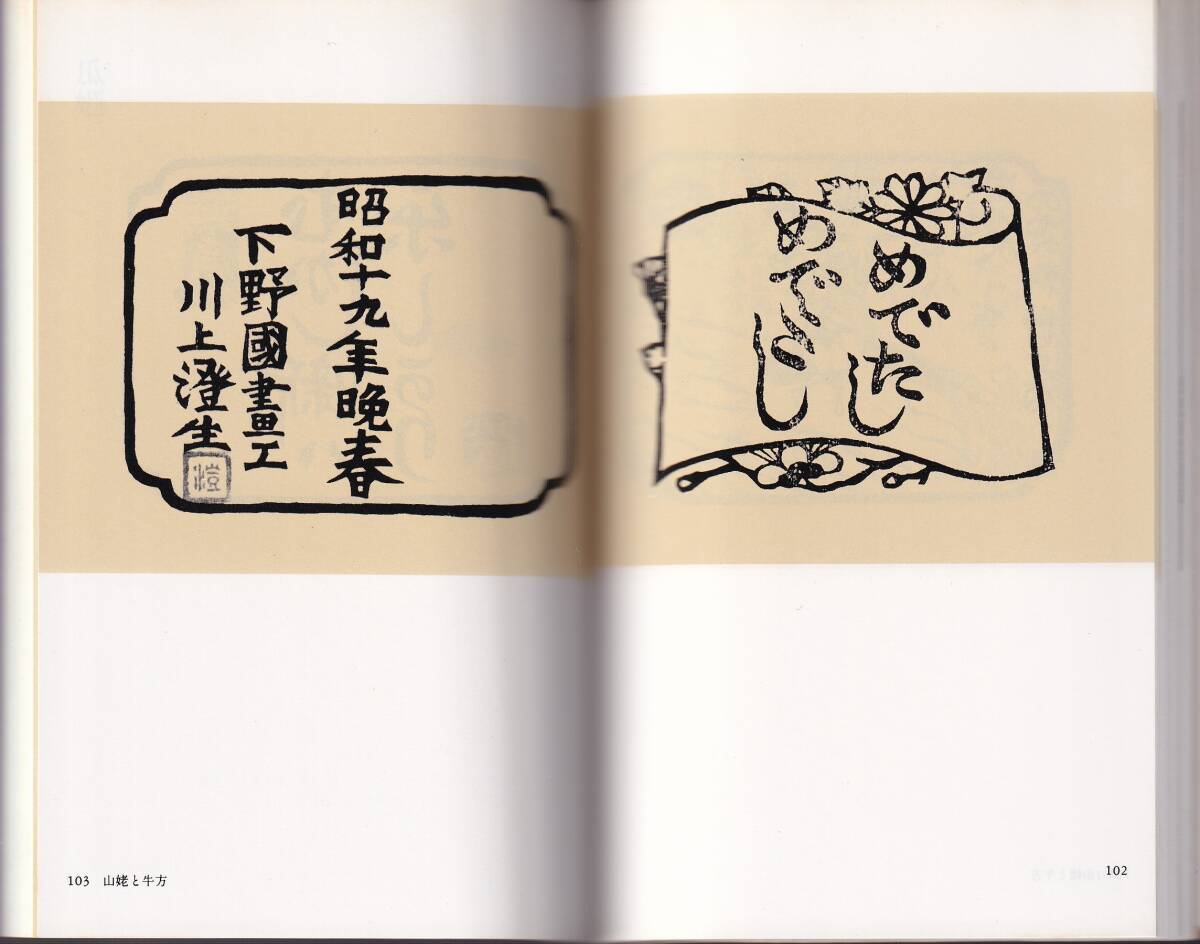 めでたし
めでたし
102
昭和十九年晩春
下野國畫工
川上澄生
103 山姥と牛方